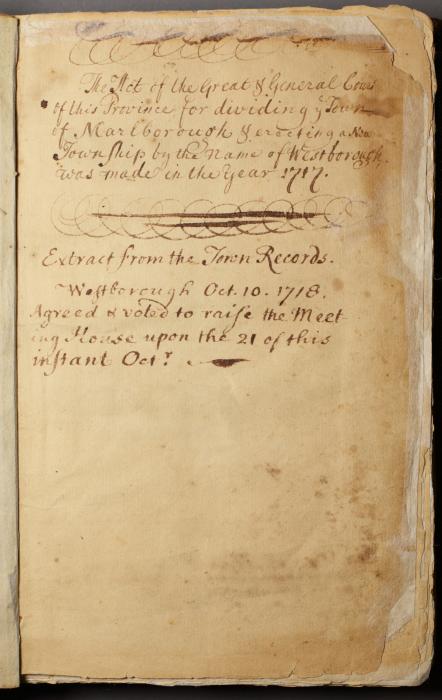 The Act of the Great & General Cour
of this Province for dividing yͤ Town
of Marlborough & erecting a New
Township by the Name of Westborough,
was made in the Year 1717.
Extract from the Town Records.
Westborough Oct. 10. 1718.
Agreed & voted to raiſe the Meet
ing House upon the 21 of this
inſtant Octʳ.